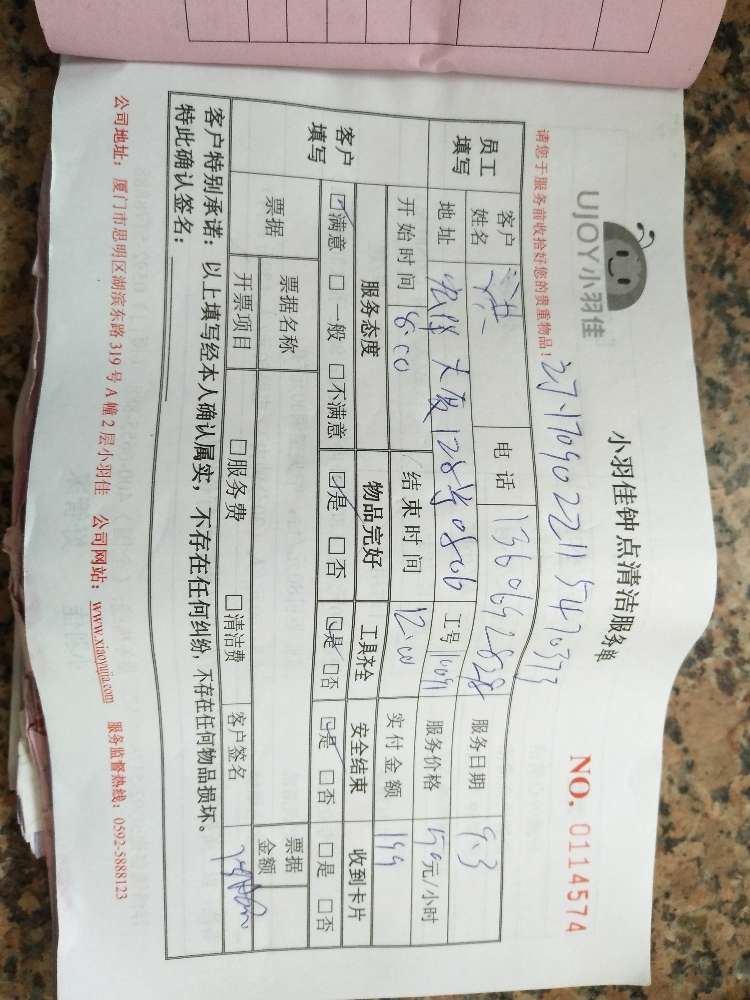 UJOY小羽佳
小羽佳钟点清洁服务单
NO. 0114574
请您于服务前收拾好您的贵重物品！
员工填写
客户姓名 电话 服务日期 9.3
地址 大厦128号0806 工号 服务价格 50元/小时
开始时间 8:00 结束时间 12:00 实付金额 199
客户填写
服务态度 物品完好 工具齐全 安全结束 收到卡片
☑满意 □一般 □不满意 ☑是 □否 ☑是 □否 ☑是 □否 □是 □否
票据 票据名称 票据金额
开票项目 □服务费 □清洁费 客户签名
客户特别承诺：以上填写经本人确认属实，不存在任何纠纷，不存在任何物品损坏。
特此确认签名：
公司地址：厦门市思明区湖滨东路319号A幢2层小羽佳 公司网站：www.xiaoyujia.com 服务监督热线：0592-5888123